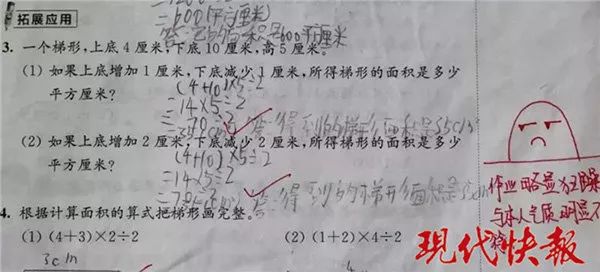 =600(平方厘米)
600平方厘米
拓展应用
3. 一个梯形,上底 4 厘米,下底 10 厘米,高 5 厘米。
(1) 如果上底增加 1 厘米,下底减少 1 厘米,所得梯形的面积是多少
平方厘米?
(4+10)×5÷2
=14×5÷2
=70÷2
答:得到的梯形面积是35c㎡
(2) 如果上底增加 2 厘米,下底减少 2 厘米,所得梯形的面积是多少
平方厘米?
(4+10)×5÷2
=14×5÷2
答:得到的梯形面积是
4. 根据计算面积的算式把梯形画完整。
(1) (4+3)×2÷2
(2) (1+2)×4÷2
3cm
作业略显
与本人气质明显不
现代快报